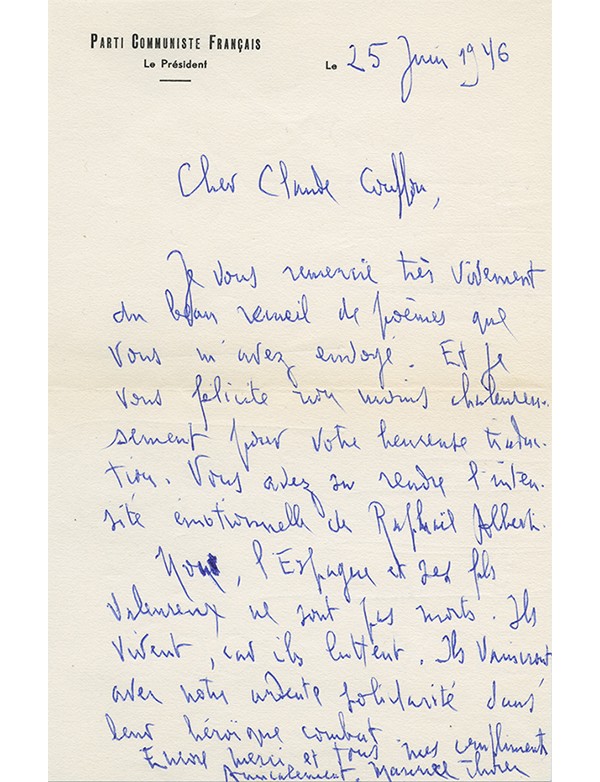 PARTI COMMUNISTE FRANÇAIS
Le Président
Le 25 Juin 1946
Cher Claude Couffon,
Je vous remercie très vivement
du beau recueil de poèmes que
vous m'avez envoyé. Et je
vous félicite non moins chaleureu-
sement pour votre heureuse traduc-
tion. Vous avez su rendre l'inten-
sité émotionnelle de Raphaël Alberti.
Non, l'Espagne et ses fils
valeureux ne sont pas morts. Ils
vivent, car ils luttent. Ils vaincront
avec notre ardente solidarité dans
leur héroïque combat
Encore merci et tous mes compliments
Amicalement, Maurice Thorez